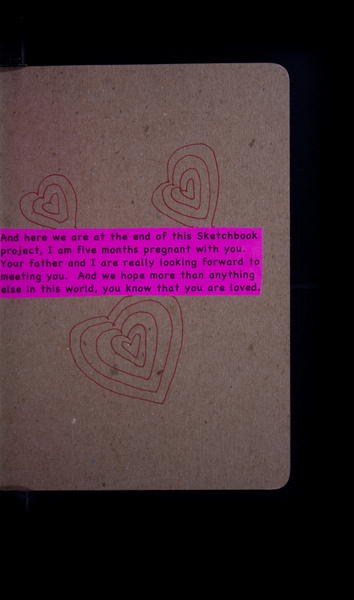 And here we are at the end of this Sketchbook
project, I am five months pregnant with you.
Your father and I are really looking forward to
meeting you. And we hope more than anything
else in this world, you know that you are loved.